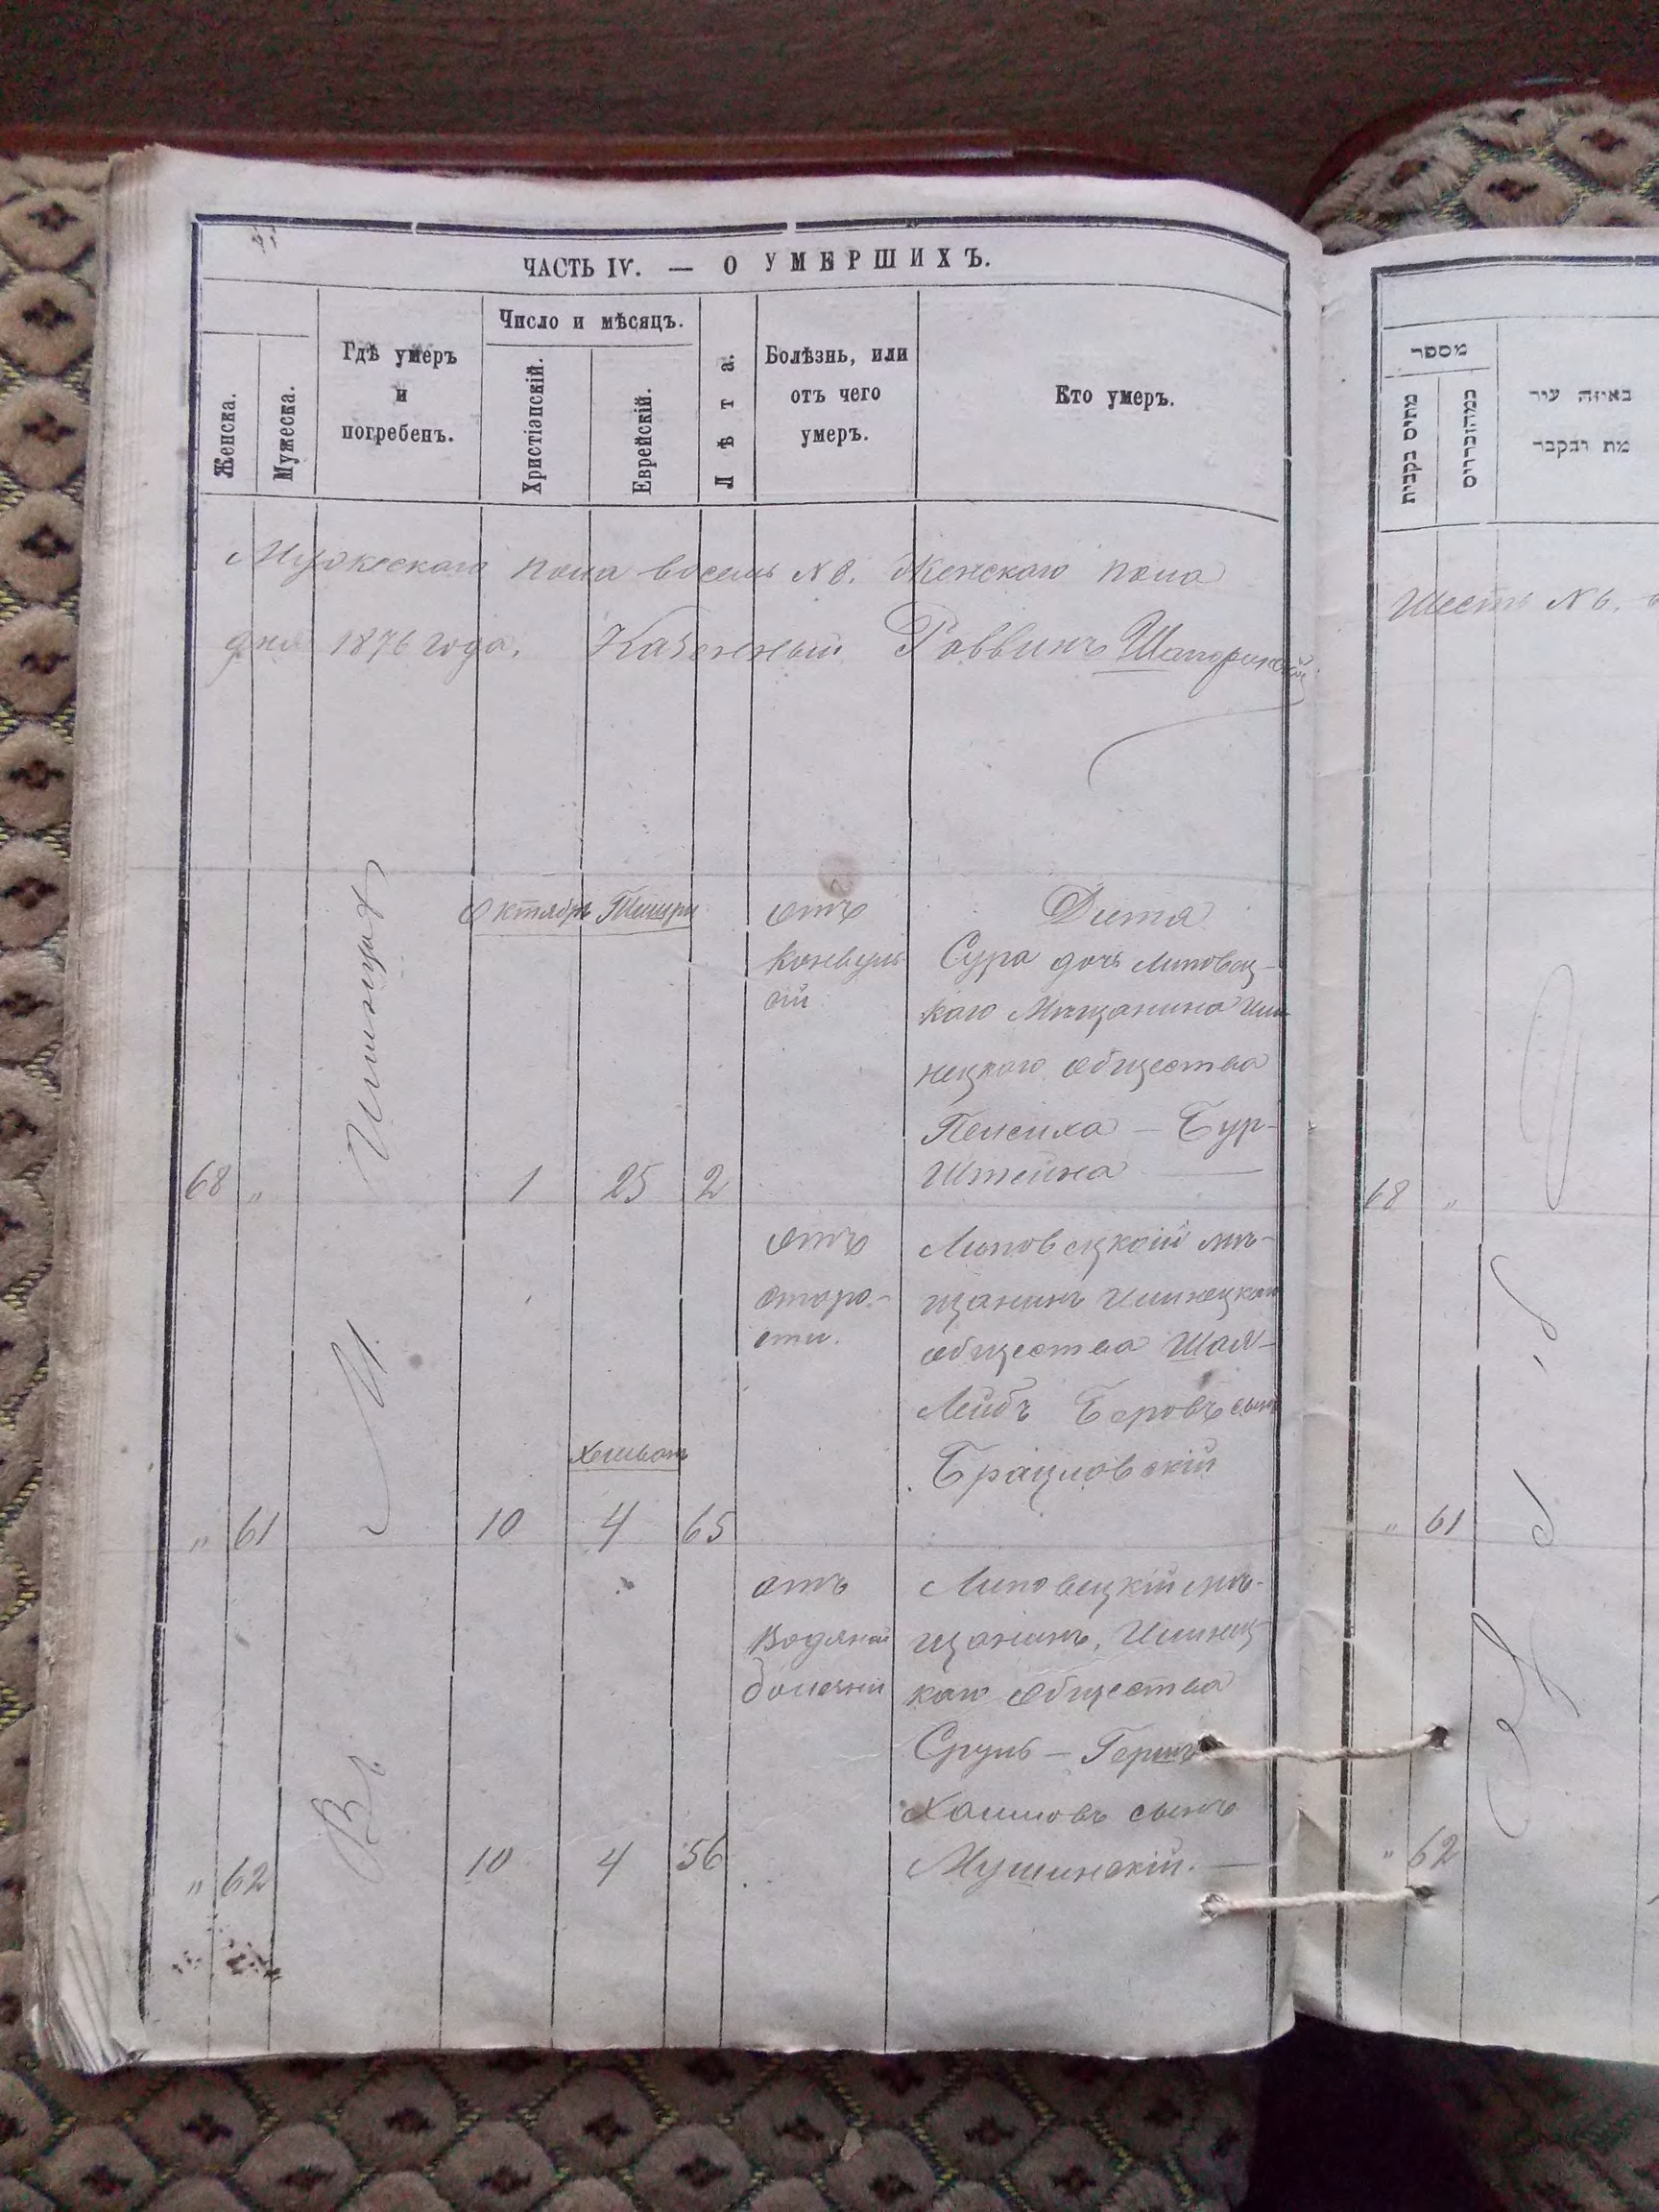 ЧАСТЬ IV. — О УМЕРШИХЪ.
Женска.
Мужеска.
Гдѣ умеръ
и
погребенъ.
Число и мѣсяцъ.
Христіанскій.
Еврейскій.
Лѣта.
Болѣзнь, или
отъ чего
умеръ.
Кто умеръ.
Мужескаго пола восемь N 8. Женскаго пола
дня 1876 года. Казенный Раввинъ
Октябрь Тишри
отъ
конвуль
сій
Дитя
Сура дочь Липовец-
каго Мѣщанина Иль
нецкаго общества
Пейсиха — Бур-
Штейна —
68 " 1 25 2
отъ
старо-
сти.
Липовецкій мѣ-
щанинъ Ильнецкаго
общества Шая-
Лейбъ Беровъ сынъ
Брацловскій
Хешванъ
" 61 10 4 65
отъ
Водяной
болѣзни
Липовецкій мѣ-
щанинъ, Ильнец-
каго общества
Сруль — Гершъ
Хаимовъ сынъ
Мушинскій. —
" 62 Въ 10 4 56
מספר
באיזה עיר
מת ונקבר
Шесть N 6.
68 "
" 61
" 62